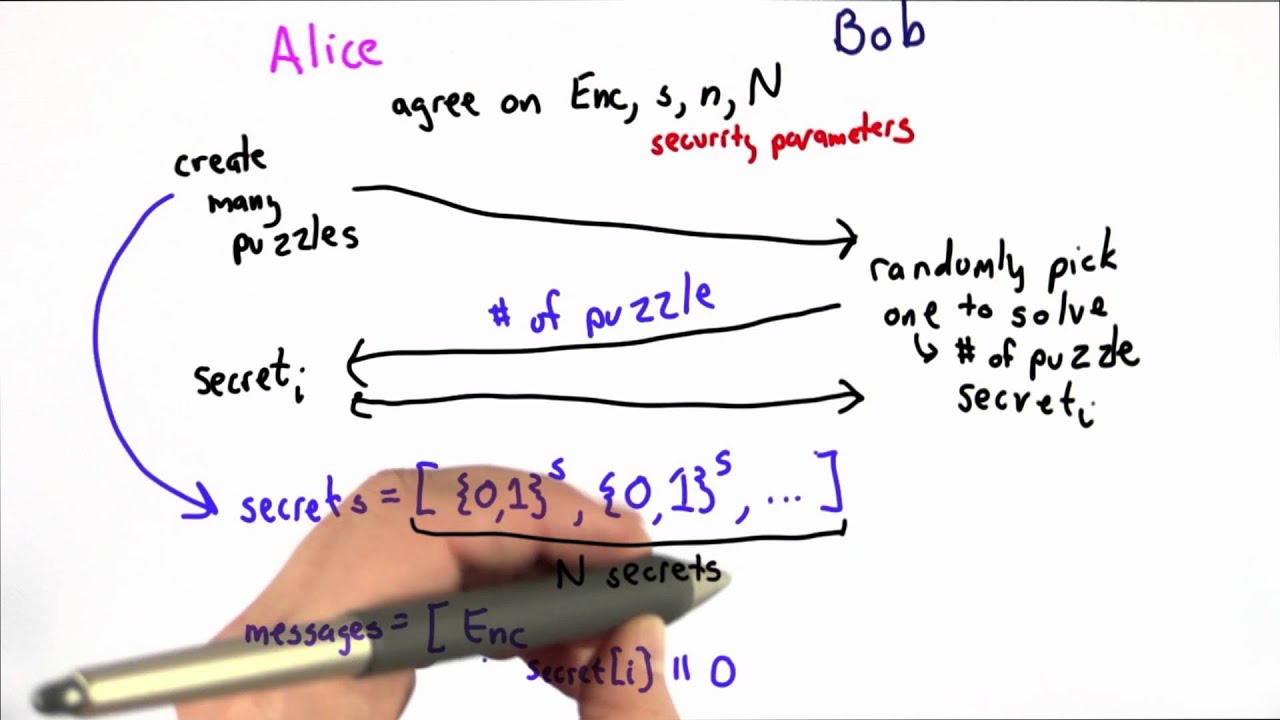 Alice
Bob
agree on Enc, s, n, N
security parameters
create
many
puzzles
randomly pick
one to solve
↳ # of puzzle
secretᵢ
# of puzzle
secretᵢ
secrets = [ {0,1}ˢ, {0,1}ˢ, ... ]
N secrets
messages = [ Enc
secret[i] || 0